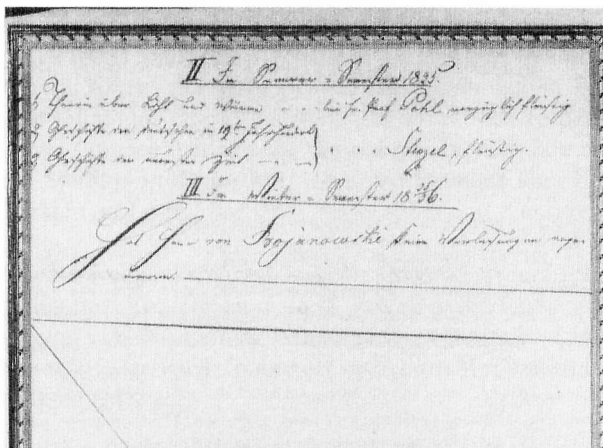 II Im Sommer-Semester 1835.
1, Theorie über Licht und Wärme - - bei Hr. Prof. Pohl vorzüglich fleißig
2, Geschichte der Deutschen im 19ten Jahrhundert
3, Geschichte der neuesten Zeit - - - - Stenzel, fleißig.
III Im Winter-Semester 1835/36.
Hat Herr von Trojanowski keine Vorlesungen ange-
nommen.